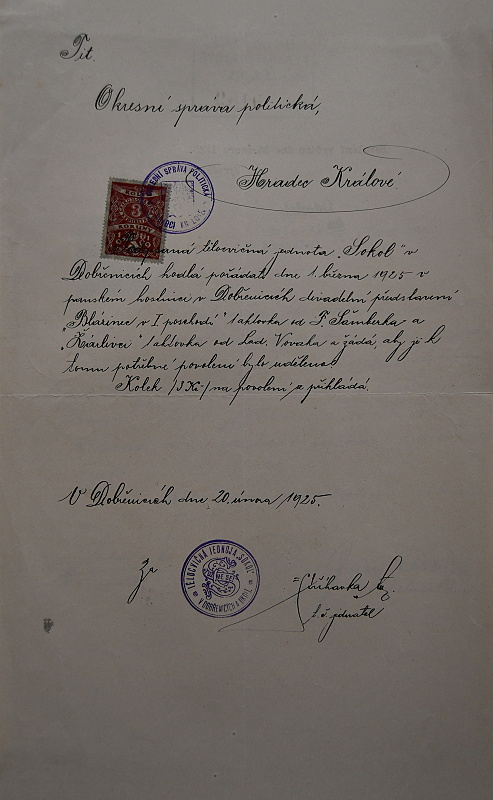 Tit.
Okresní správa politická,
Hradec Králové.
tělocvičná jednota „Sokol" v
Dobřenicích hodlá pořádati dne 1. března 1925 v
panském hostinci v Dobřenicích divadelní představení
„Blázinec v I poschodí" 1 aktovka od F. Šamberka a
„Žárlivci" 1 aktovka od Lad. Vovaka a žádá, aby jí k
tomu potřebné povolení bylo uděleno.
Kolek /3 Kč/ na povolení se přikládá.
V Dobřenicích dne 20. února 1925.
Za
TĚLOCVIČNÁ JEDNOTA „SOKOL"
V DOBŘENICÍCH
t. č. jednatel
SPRÁVA POLITICKÁ
3